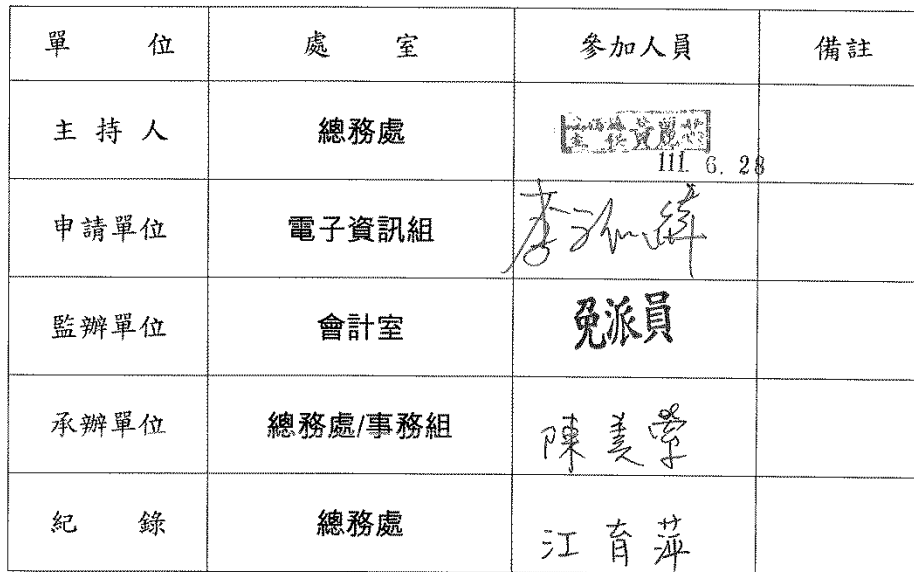 單 位 處 室 參加人員 備註
主 持 人 總務處 黃麗
111. 6. 28
申請單位 電子資訊組 李
監辦單位 會計室 免派員
承辦單位 總務處/事務組 陳美
紀 錄 總務處 江育萍